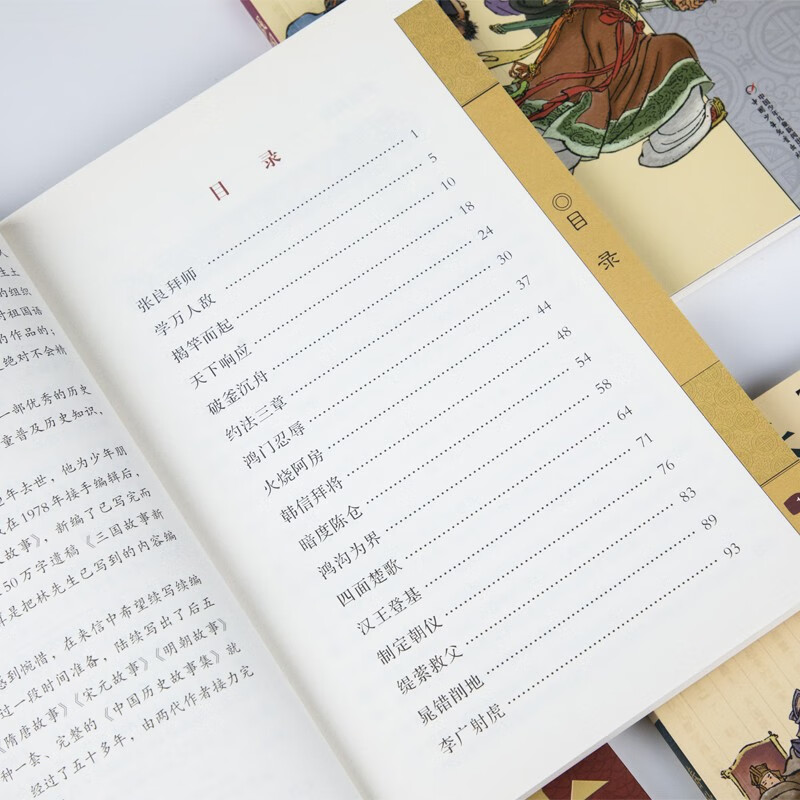 的组织
对祖国语
的作品的；
绝对不会精
一部优秀的历史
童普及历史知识，
年去世，他为少年朋
在1978年接手编辑后，
故事》，新编了已写完而
50万字遗稿《三国故事新
样是把林先生已写到的内容编
感到惋惜，在来信中希望续写续编
过一段时间准备，陆续写出了后五
《隋唐故事》《宋元故事》《明朝故事》
种一套、完整的《中国历史故事集》就
经过了五十多年，由两代作者接力完
目 录
张良拜师 1
学万人敌 5
揭竿而起 10
天下响应 18
破釜沉舟 24
约法三章 30
鸿门忍辱 37
火烧阿房 44
韩信拜将 48
暗度陈仓 54
鸿沟为界 58
四面楚歌 64
汉王登基 71
制定朝仪 76
缇萦救父 83
晁错削地 89
李广射虎 93
◎目 录